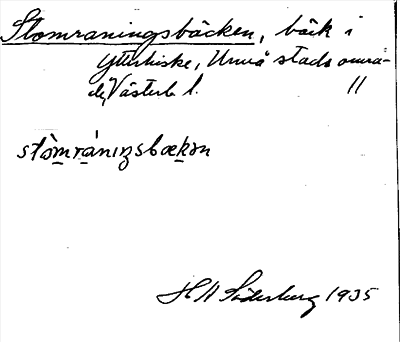 Stomraningsbäcken, bäck i
Ytterhiske, Umeå stads områ-
de, Västerb l. 11
stòmráningsbækɘn
H W Söderberg 1935